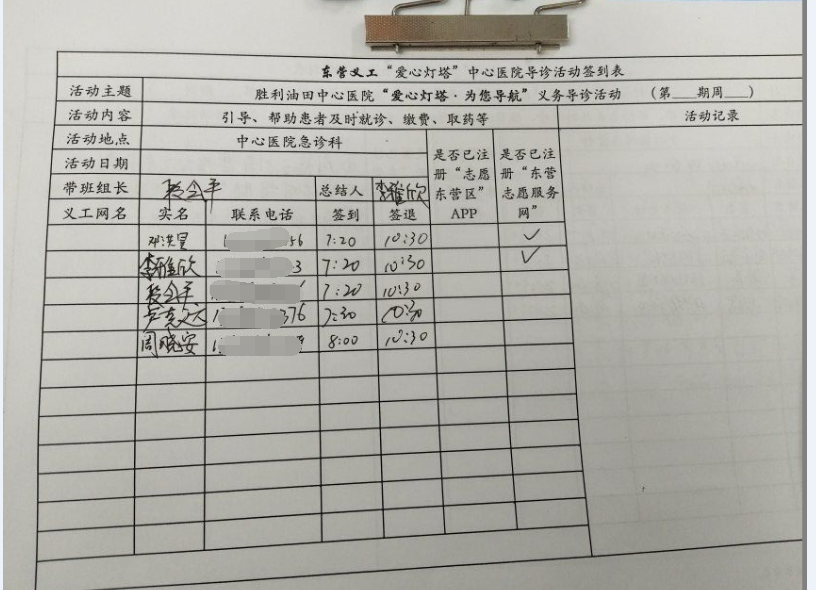 东营义工“爱心灯塔”中心医院导诊活动签到表
活动主题 胜利油田中心医院“爱心灯塔·为您导航”义务导诊活动 （第___期周___）
活动内容 引导、帮助患者及时就诊、缴费、取药等 活动记录
活动地点 中心医院急诊科
是否已注册“志愿东营区”APP
是否已注册“东营志愿服务网”
活动日期
带班组长 总结人 李雅欣
义工网名 实名 联系电话 签到 签退
邓洪星 56 7:20 10:30 ✓
李雅欣 3 7:20 10:30 ✓
7:20 10:30
376 7:30 10:30
周晓安 8:00 10:30